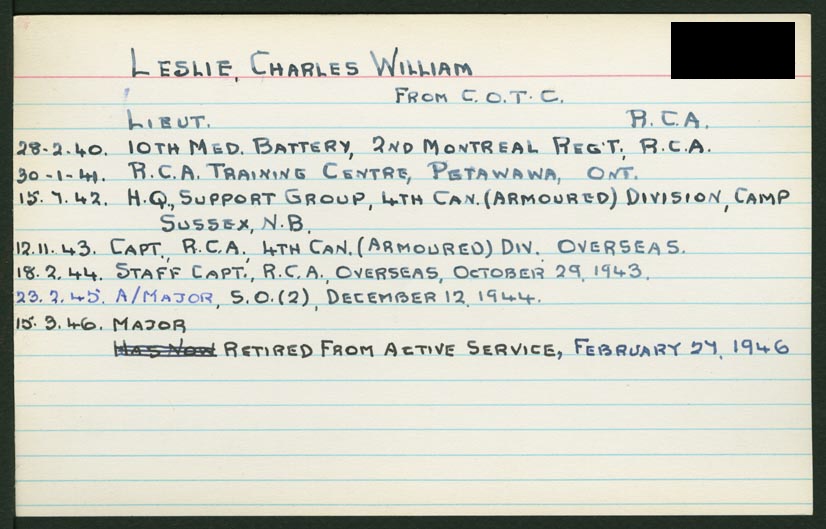 LESLIE, CHARLES WILLIAM
FROM C.O.T.C.
LIEUT. R.C.A.
28-2-40. 10TH MED. BATTERY, 2ND MONTREAL REG'T, R.C.A.
30-1-41. R.C.A. TRAINING CENTRE, PETAWAWA, ONT.
15.7.42. H.Q., SUPPORT GROUP, 4TH CAN. (ARMOURED) DIVISION, CAMP
SUSSEX, N.B.
12.11.43. CAPT., R.C.A., 4TH CAN. (ARMOURED) DIV. OVERSEAS.
18.2.44. STAFF CAPT., R.C.A., OVERSEAS, OCTOBER 29, 1943.
23.2.45. A/MAJOR, S.O.(2), DECEMBER 12, 1944.
15.3.46. MAJOR
HAS NOW RETIRED FROM ACTIVE SERVICE, FEBRUARY 27, 1946